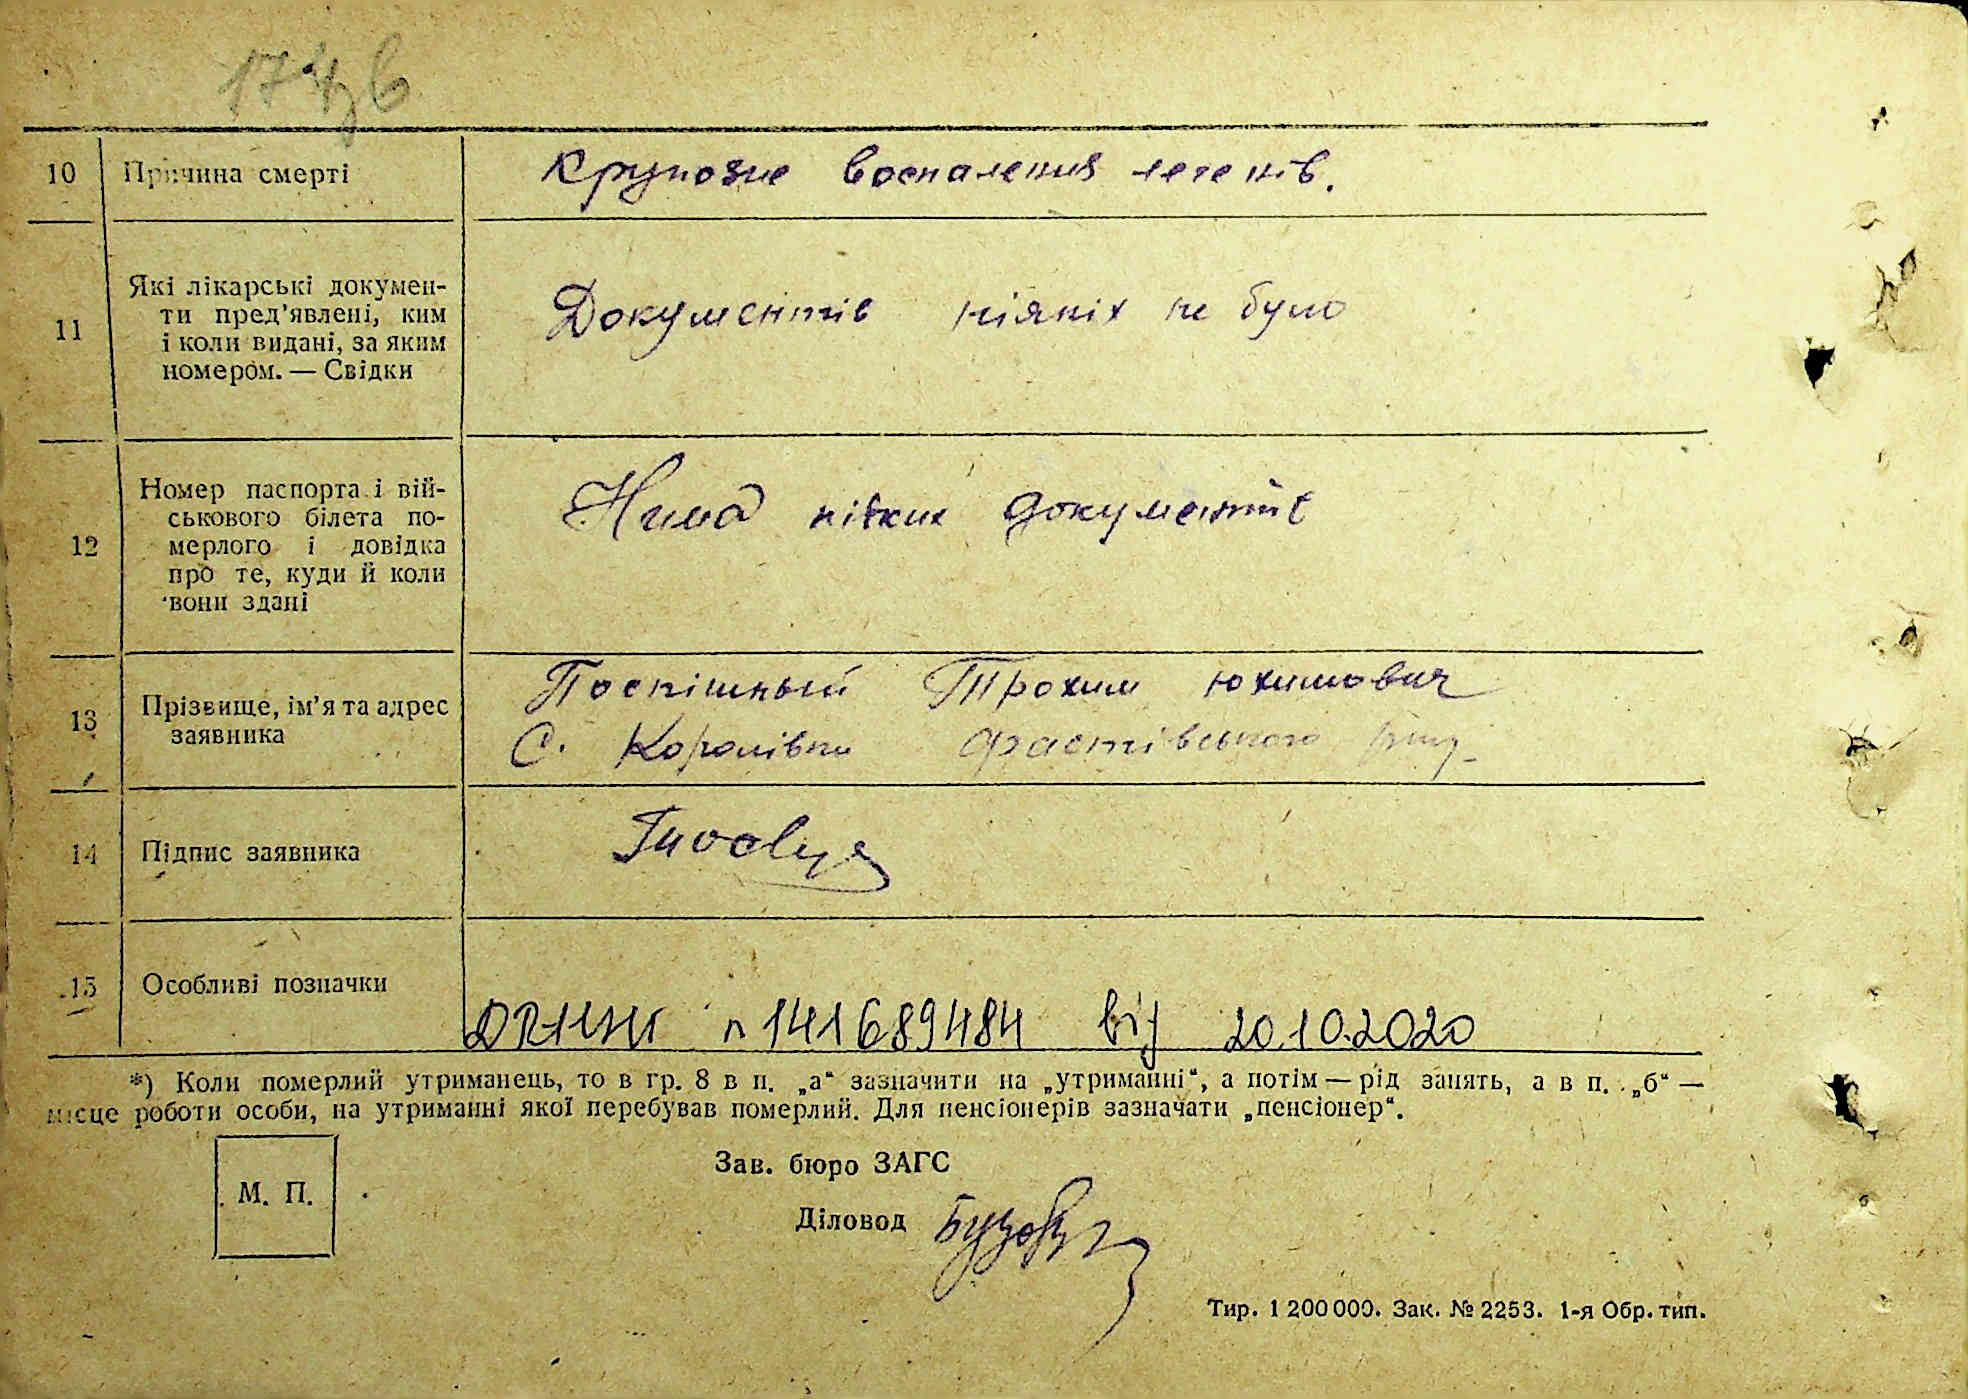 10 Причина смерті Крупозне воспаления легенів.
11 Які лікарські докумен-
ти пред'явлені, ким
і коли видані, за яким
номером. — Свідки
Документів ніякіх не було
12 Номер паспорта і вій-
ськового білета по-
мерлого і довідка
про те, куди й коли
вони здані
Нима ніяких документів
13 Прізвище, ім'я та адрес
заявника
Поспішный Трохим Юхимович
С. Королівка Фастівського
14 Підпис заявника
15 Особливі позначки
ДРАЦСЦГ n 141689484 від 20.10.2020
*) Коли померлий утриманець, то в гр. 8 в п. „а“ зазначити на „утриманні“, а потім — рід занять, а в п. „б“ —
місце роботи особи, на утриманні якої перебував померлий. Для пенсіонерів зазначати „пенсіонер“.
М. П.
Зав. бюро ЗАГС
Діловод
Тир. 1 200 000. Зак. № 2253. 1-я Обр. тип.